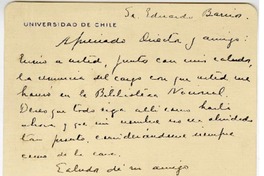 Sr. Eduardo Barrios.
UNIVERSIDAD DE CHILE
Apreciado Director y amigo:
Envío a usted, junto con mis saludos,
la renuncia del cargo con que usted me
honró en la Biblioteca Nacional.
Deseo que todo siga allí como hasta
ahora, y que mi nombre no sea olvidado
tan pronto, considerándome siempre
como de la casa.
Saluda a su amigo